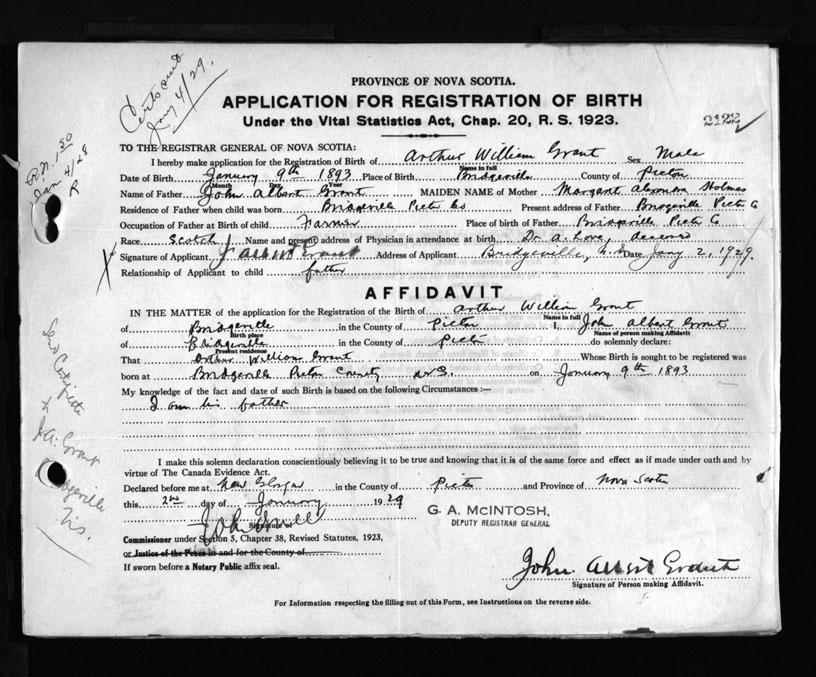 PROVINCE OF NOVA SCOTIA.
APPLICATION FOR REGISTRATION OF BIRTH
Under the Vital Statistics Act, Chap. 20, R. S. 1923.
2122
Jany 4/29.
Jan 4/28
R
TO THE REGISTRAR GENERAL OF NOVA SCOTIA:
I hereby make application for the Registration of Birth of Arthur William Grant Sex Male
Name in full
Date of Birth January 9th 1893 Place of Birth Bridgeville County of Pictou
Month Day Year
Name of Father John Albert Grant MAIDEN NAME of Mother Margaret Holmes
Residence of Father when child was born Bridgeville Pictou Co Present address of Father Bridgeville Pictou Co
Occupation of Father at Birth of child Farmer Place of birth of Father Bridgeville Pictou Co
Race Scotch Name and present address of Physician in attendance at birth Dr A.
Signature of Applicant J Albert Grant Address of Applicant Bridgeville, N.S Date Jany 2, 1929.
Relationship of Applicant to child father
AFFIDAVIT
IN THE MATTER of the application for the Registration of the Birth of Arthur William Grant
Name in full
of Bridgeville in the County of Pictou I, John Albert Grant
Birth place Name of person making Affidavit
of Bridgeville in the County of Pictou do solemnly declare:
Present residence
That Arthur William Grant Whose Birth is sought to be registered was
born at Bridgeville Pictou County N.S. on January 9th 1893
My knowledge of the fact and date of such Birth is based on the following Circumstances :—
I am his father
I make this solemn declaration conscientiously believing it to be true and knowing that it is of the same force and effect as if made under oath and by
virtue of The Canada Evidence Act.
Declared before me at New Glasgow in the County of Pictou and Province of Nova Scotia
this 2nd day of January 1929
G. A. McINTOSH,
DEPUTY REGISTRAR GENERAL
Signature of
Commissioner under Section 5, Chapter 38, Revised Statutes, 1923,
or Justice of the Peace in and for the County of
If sworn before a Notary Public affix seal.
John Albert Grant
Signature of Person making Affidavit.
For Information respecting the filling out of this Form, see Instructions on the reverse side.
Send Certificate
to
J.A. Grant
Bridgeville
N.S.